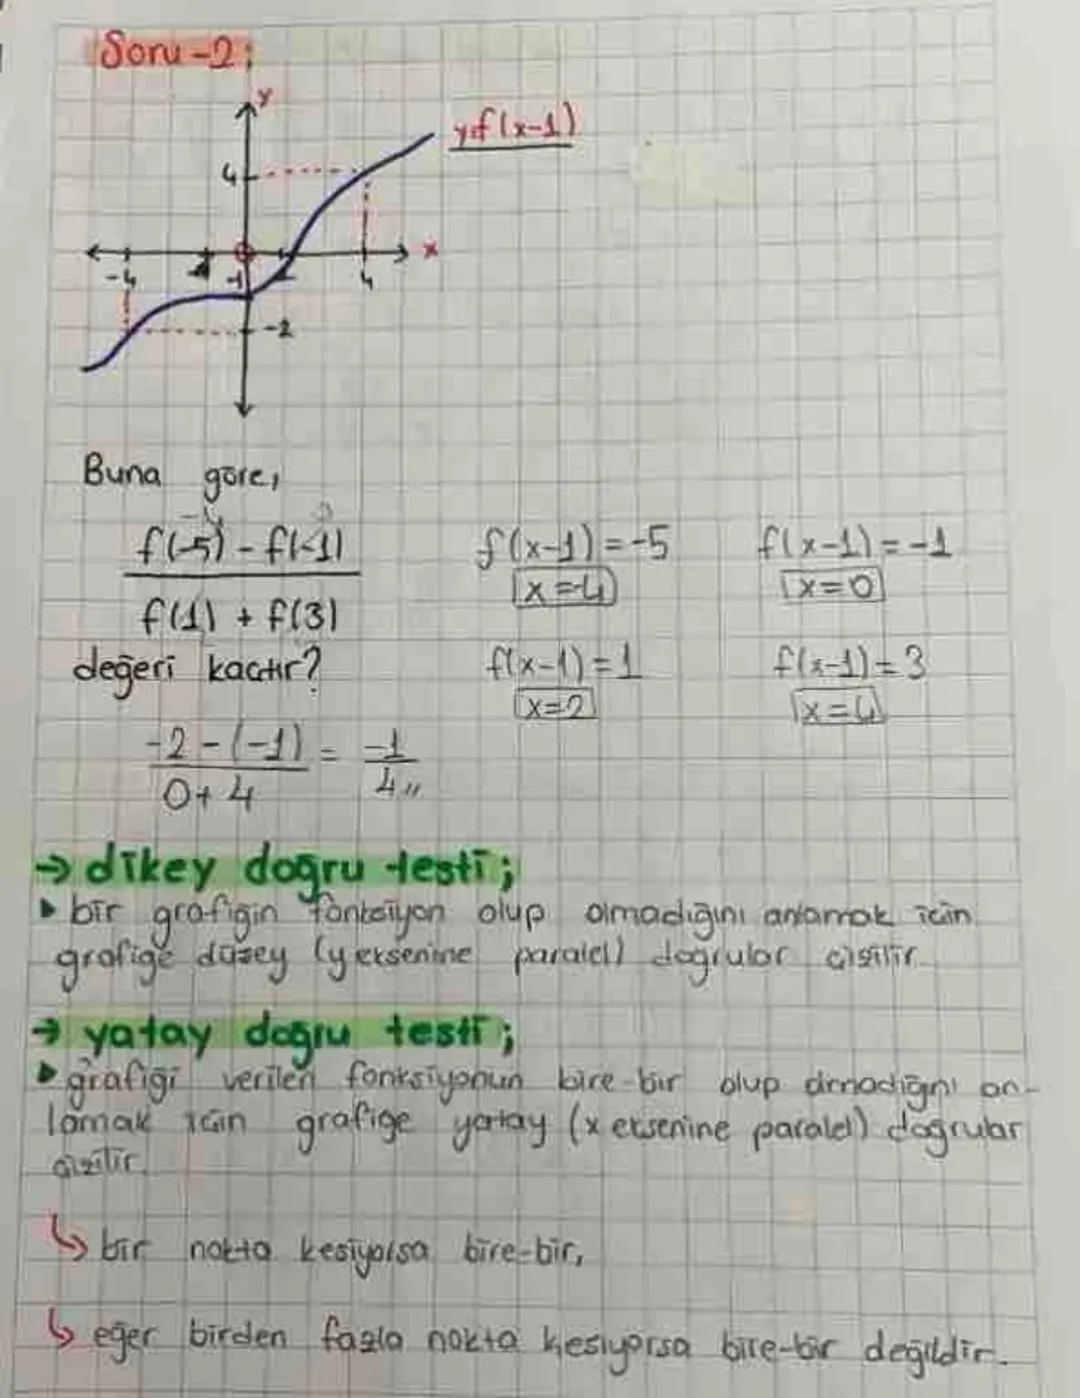 Soru-2;
y
y=f(x-1)
4
x
-4
-1
4
-2
Buna göre,
f(-5) - f(-1)
f(1) + f(3)
değeri kaçtır?
f(x-1) = -5
x=-4
f(x-1) = -1
x=0
f(x-1) = 1
x=2
f(x-1) = 3
x=4
-2 - (-1) = -1
0+4 4,,
→ dikey doğru testi;
▸ bir grafiğin fonksiyon olup olmadığını anlamak için
grafiğe düşey (y eksenine paralel) doğrular çizilir.
→ yatay doğru testi;
▸ grafiği verilen fonksiyonun bire-bir olup olmadığını an-
lamak için grafiğe yatay (x eksenine paralel) doğrular
çizilir.
↳ bir nokta kesiyorsa bire-bir,
↳ eğer birden fazla nokta kesiyorsa bire-bir değildir.